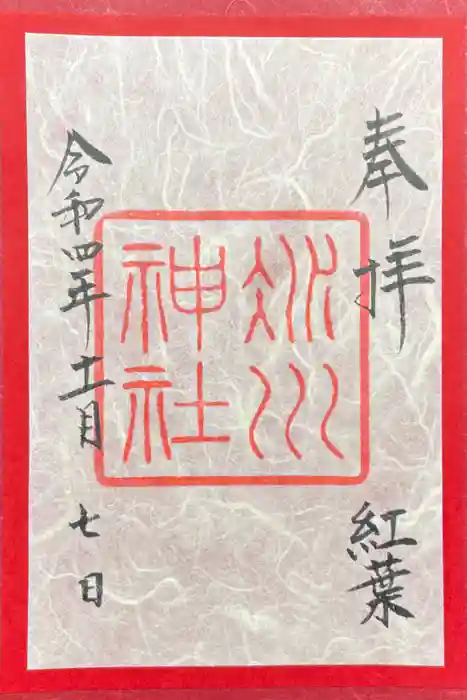 奉拝
紅葉
冰川
神社
令和四年十一月七日